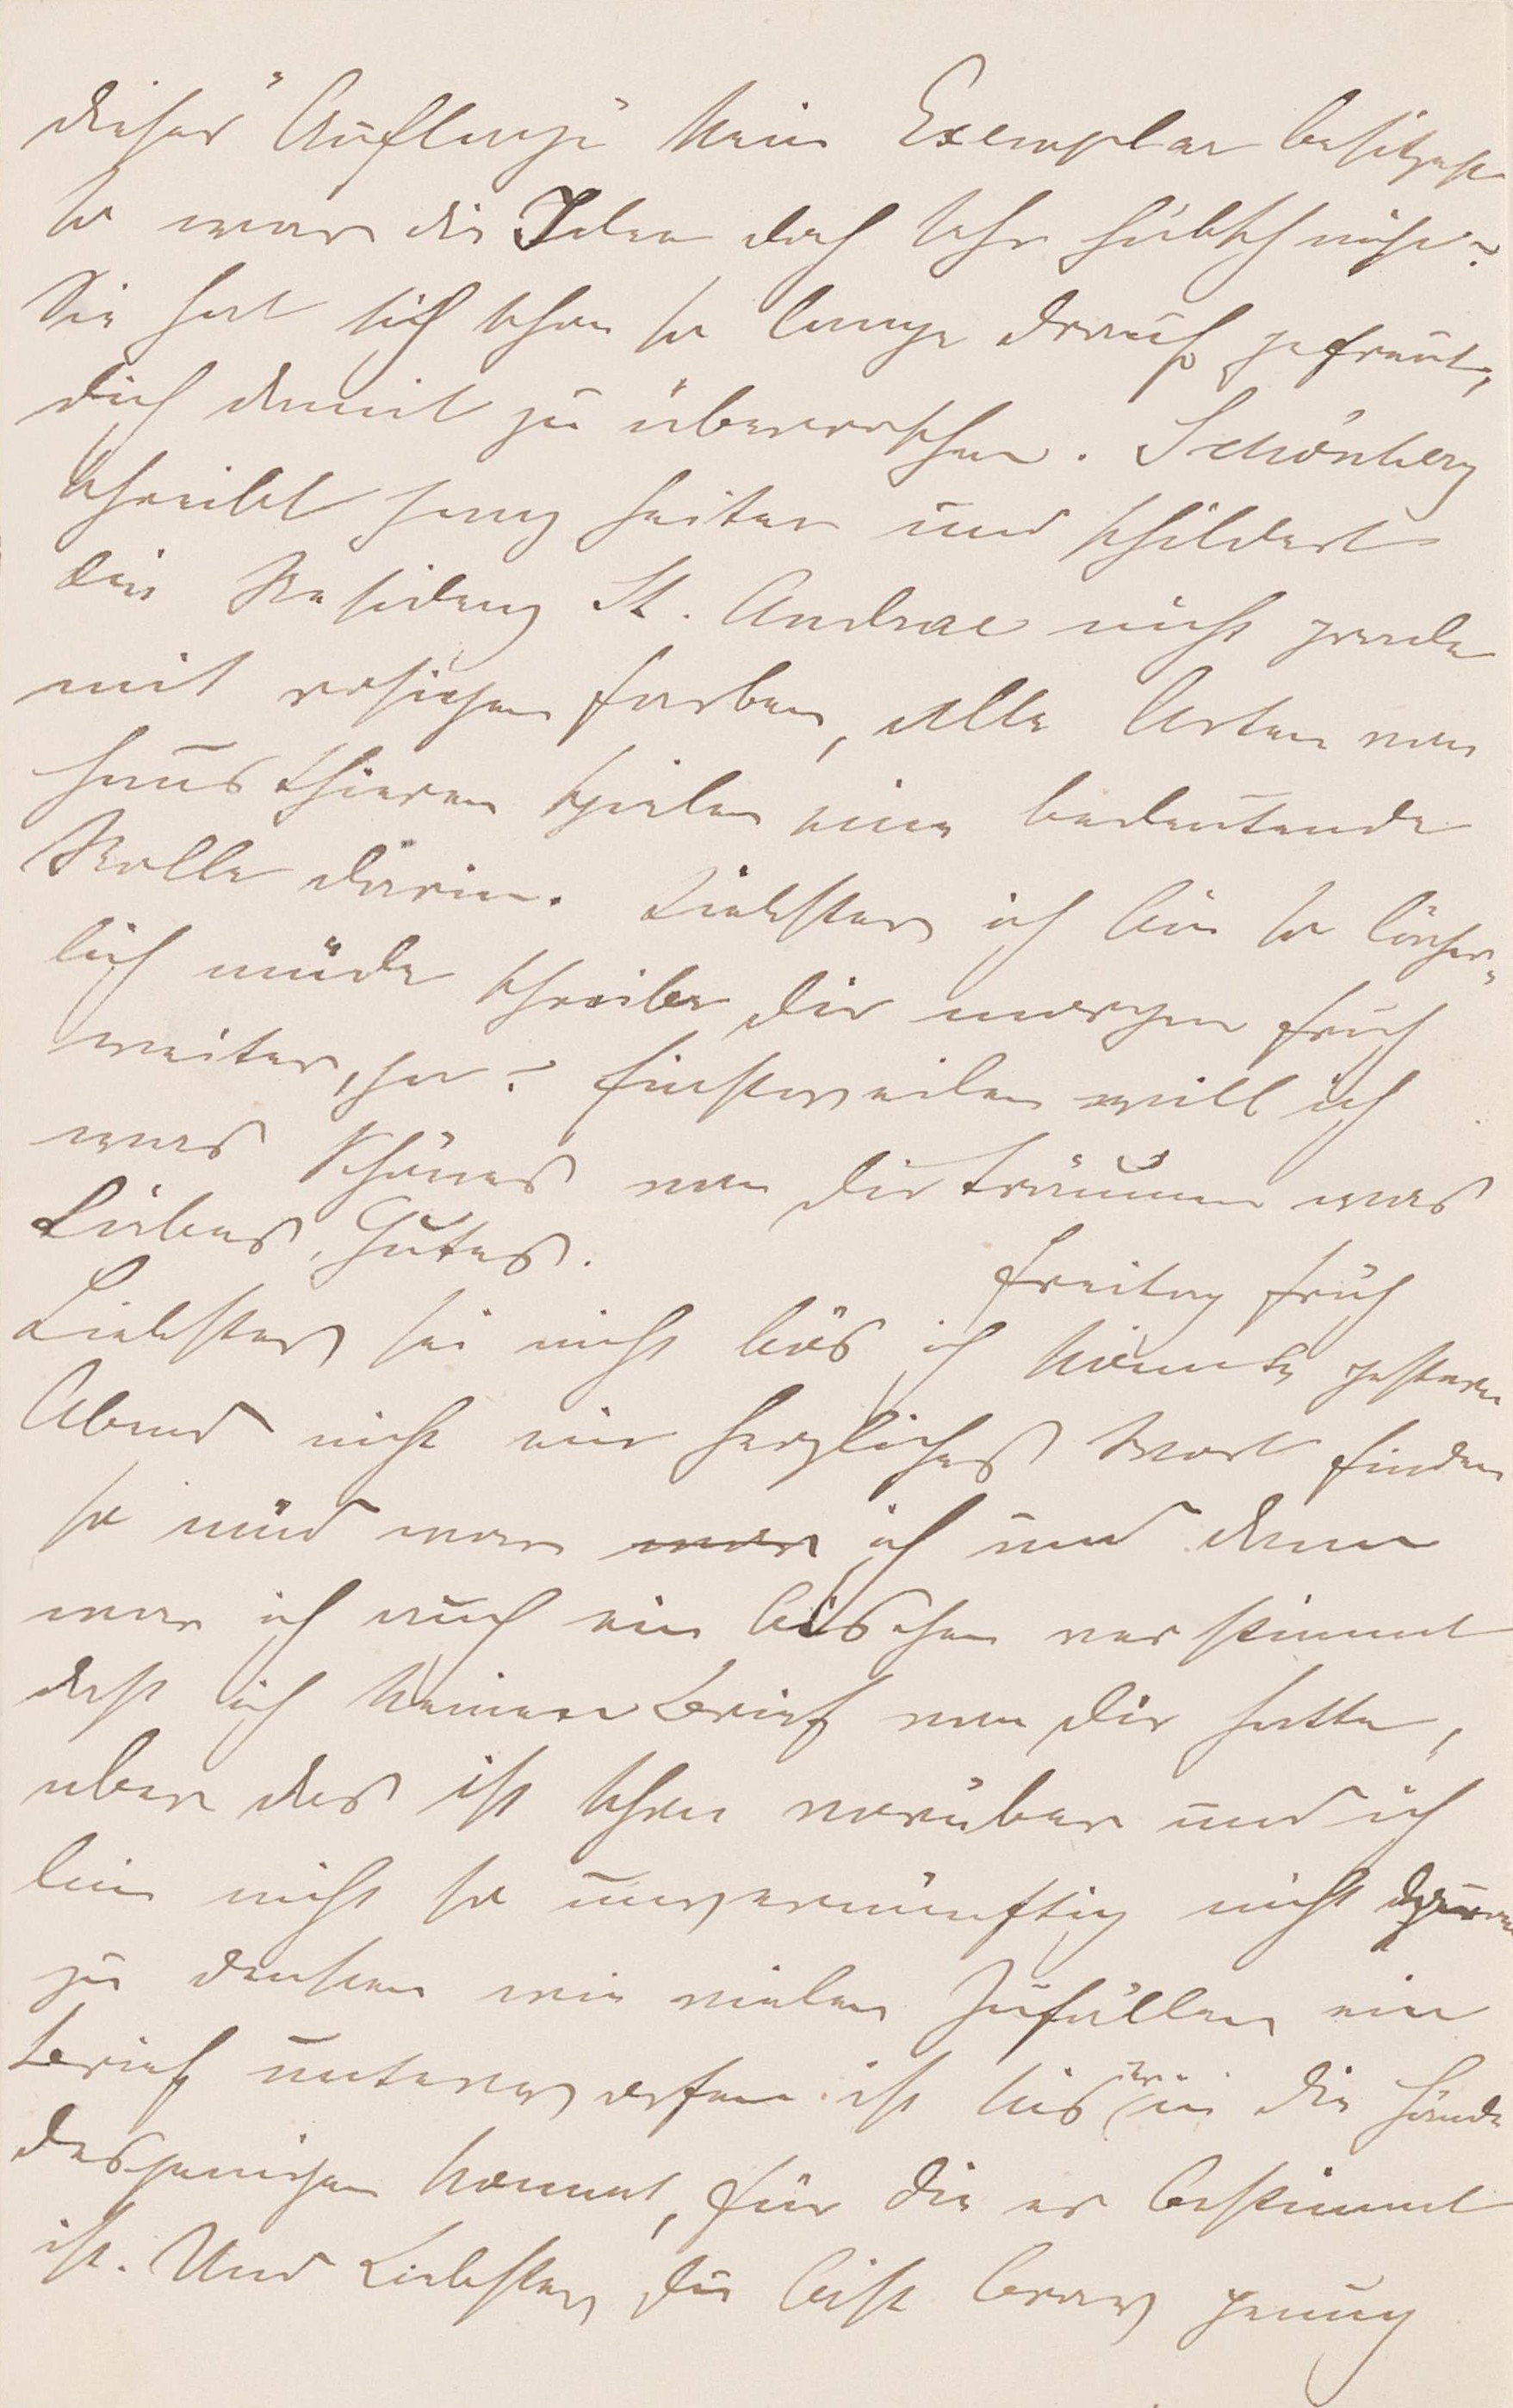 dieser "Auflage" kein Exemplar besitzest
so war die Idee doch sehr hübsch nicht?
Sie hat sich schon so lange drauf gefreut,
dich damit zu überraschen. Schönberg
schreibt sehr heiter und schildert
die Residenz St. Andrae nicht grade
mit rosigen Farben, alle Arten von
Hausthieren spielen eine bedeutende
Rolle darin. Liebster ich bin so lächer-
lich müde schreibe dir morgen früh
weiter, ja? Einstweilen will ich
was Schönes von dir träumen was
Liebes, Gutes.
Freitag früh
Liebster sei nicht bös ich konnte gestern
Abend nicht ein herzliches Wort finden
so müd war war ich und dann
war ich auch ein bischen verstimmt
dass ich keinen Brief von dir hatte,
aber das ist schon vorüber und ich
bin nicht so unvernünftig nicht daran
zu denken wie vielen Zufällen ein
Brief unterworfen ist bis er in die Hände
desjenigen kommt, für die er bestimmt
ist. Und Liebster du bist brav genug